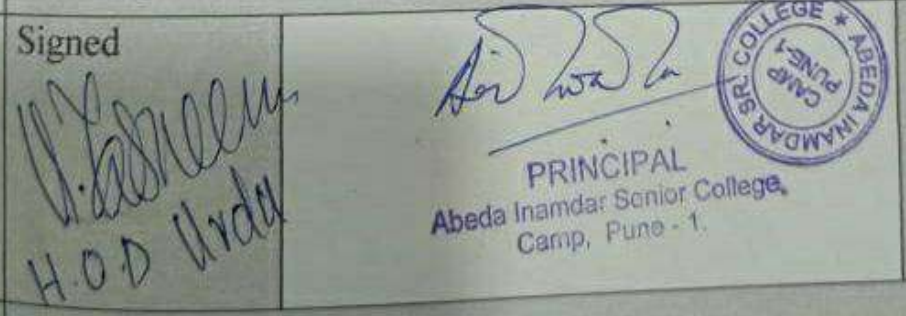 Signed
H.O.D Urdu
PRINCIPAL
Abeda Inamdar Senior College,
Camp, Pune - 1.
ABEDA INAMDAR SR. COLLEGE *
CAMP
PUNE-1